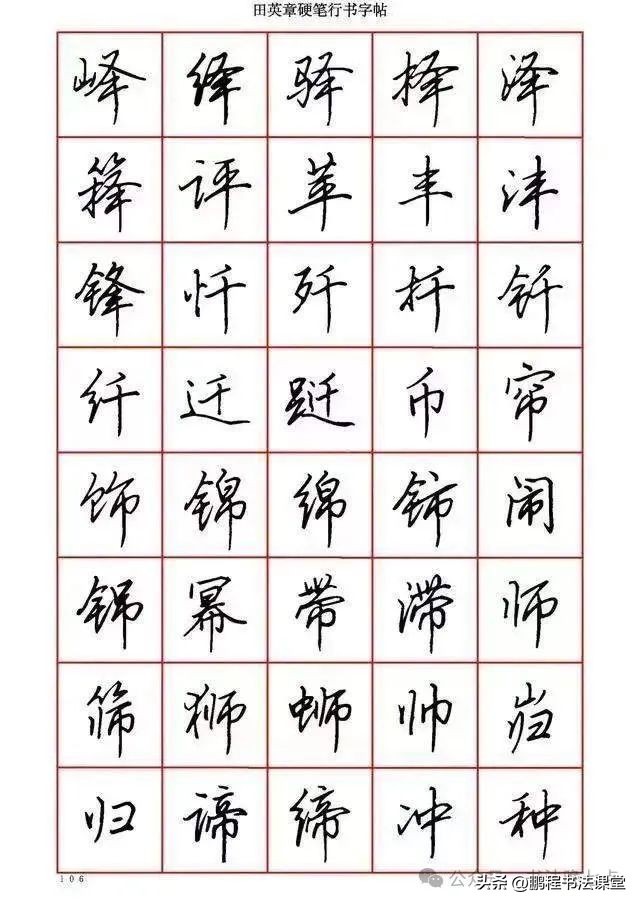 田英章硬笔行书字帖
峄 绎 驿 择 泽
箨 评 苹 丰 沣
锋 忏 歼 扦 钎
纤 迁 跹 币 帘
饰 锦 绵 铈 闹
幂 带 滞 师
筛 狮 蛳 帅 岿
归 谛 缔 冲 种
106
头条 @鹏程书法课堂